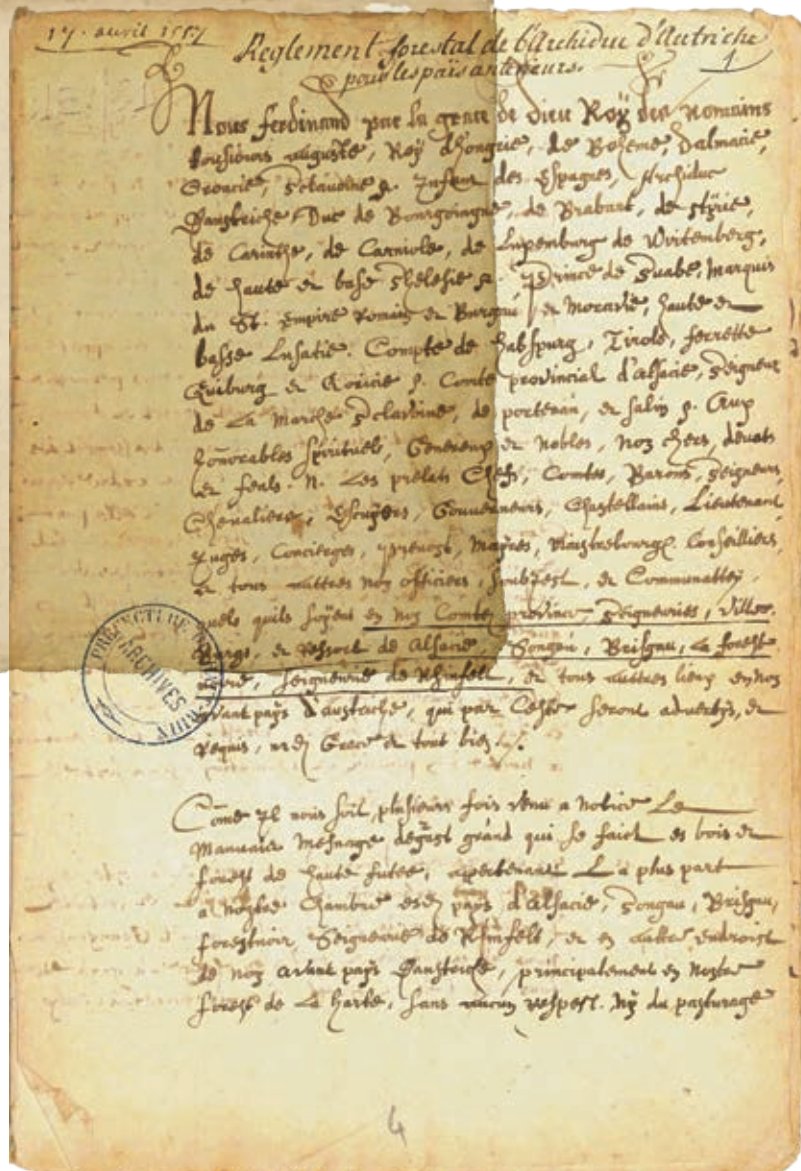 17. avril 1557
Reglement forestal de l'Archiduc d'Autriche
pour les païs antérieurs.
1
Nous ferdinand par la grace de Dieu Roÿ des Romains
tousiours auguste, Roÿ d'hongrie, de Boheme, Dalmacie,
Croacie, Sclavonie &. Infant des Espagnes, Archiduc
d'austriche Duc de Bourgoingne, de Brabant, de stÿrie,
de Carinthe, de Carniole, de Luxenburg de Wirtemberg,
de haute et basse Prince de Suabe, Marquis
du St. Empire Romain de Burgau et Moravie, haute et
basse Lusatie. Compte de habspurg, Tirole, ferrette
Quiburg et Goricie &. Comte provincial d'alsacie, Seigneur
de La Marche Sclavoine, de portenau, et salin &. Aux
honorables spirituels, Genereux et Nobles, noz chers, devots
et feals. N. Les prelats Comtes, Barons, Seigneurs,
Chevaliers, Gouverneurs, Chastellains, Lieutenant
Juges, Concierges, prevost, Conseilliers,
et tous aultres noz officiers, et
quels quils soÿent en noz Comtez province, Seigneuries, Villes.
et ressort de Alsacie, Songau, Brisgau, La forest
noire, Seigneurie de Rhinfelt, et tous aultres lieux en noz
avant paÿs d'austriche, qui par Ceste seront advertÿs, et
requis, Grace et tout bien
Côme Il nous soit plusieurs fois venu a notice Le
Mauvais Mesnage degast grand qui se faict es bois et
forest de haute futee, apertenant La plus part
a Nostre Chambre paÿs d'Alsacie, Songau, Brisgau,
forestnoir, Seigneurie de Rhinfelt, et en aultre endroict
de noz avant paÿs d'austriche, principalement en Nostre
forest de La harte, sans aucun respect. Nÿ du pasturage
PREFECTURE DU
ARCHIVES
4